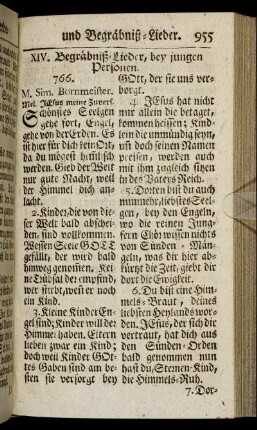 und Begräbniß-Lieder. 955
XIV. Begräbniß-Lieder, bey jungen
Personen.
766.
M. Sim. Bornmeister.
Mel. JEsus meine Zuvers.
Schönstes Seelgen
gehe fort, Engel,
gehe von der Erden. Es
ist hier für dich kein Ort,
da du mögest
werden. Gieb der Welt
nur gute Nacht, weil
der Himmel dich an-
lacht.
2. Kinder, die von die-
ser Welt bald abschei-
den, sind vollkommen:
Wessen Seele GOTT
gefällt, der wird bald
hinweg genomen. Kei-
ne Trübsal der empfind,
wer stirbt, weil er noch
ein Kind.
3. Kleine Kinder En-
gel sind; Kinder will der
Himmel haben. Eltern
lieben zwar ein Kind;
doch weil Kinder GOt-
tes Gaben sind am be-
sten sie versorgt bey
GOtt, der sie uns ver-
borgt.
4. JEsus hat nicht
nur allein die betagt,
kommen heissen; Kind-
lein die unmündig seyn,
uß doch seinen Namen
preisen, werden auch
mit ihm zugleich sitzen
in des Vaters Reich.
5. Dorten bist du auch
nunmehr, liebstes Seel-
gen, bey den Engeln,
wo die reinen Jung-
fern Chör wissen nichts
von Sünden - Män-
geln, was dir hier ab-
kürzt die Zeit, giebt dir
dort die Ewigkeit.
6. Du bist eine Him-
mels-Braut, deines
liebsten Heylands wor-
den. JEsus, der sich dir
vertraut, hat dich aus
den Sünden-Orden
bald genommen nun
hast du, Sternen-Kind,
die Himmels-Ruh.
7. Dor-